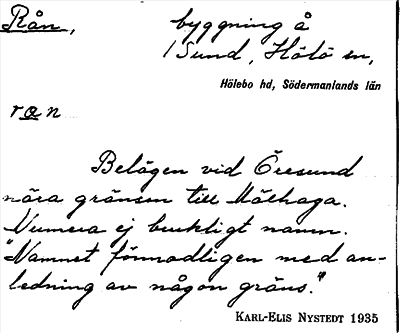 Rån, byggning å
1 Sund, Hölö sn,
Hölebo hd, Södermanlands län
ron
Belägen vid Öresund
nära gränsen till Mölhaga.
Numera ej brukligt namn.
"Namnet förmodligen med an-
ledning av någon gräns."
KARL-ELIS NYSTEDT 1935